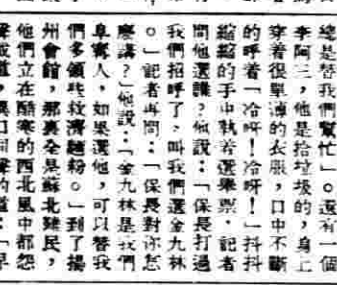 總是替我們幫忙」。還有一個
李阿三，他是拾垃圾的，身上
穿着很單薄的衣服，口中不斷
的呼着「冷呀！冷呀！」抖抖
縮縮的手中執着選舉票。記者
問他選誰？他說：「保長打過
我們招呼了，叫我們選金九林
。」記者再問：「保長對你怎
麽講？」他說：「金九林是我們
阜寗人，如果選他，可以替我
們多領些救濟麵粉。」到了揚
州會館，那裏全是蘇北難民，
他們立在酷寒的西北風中都怨
聲載道，異口同聲的道：「早